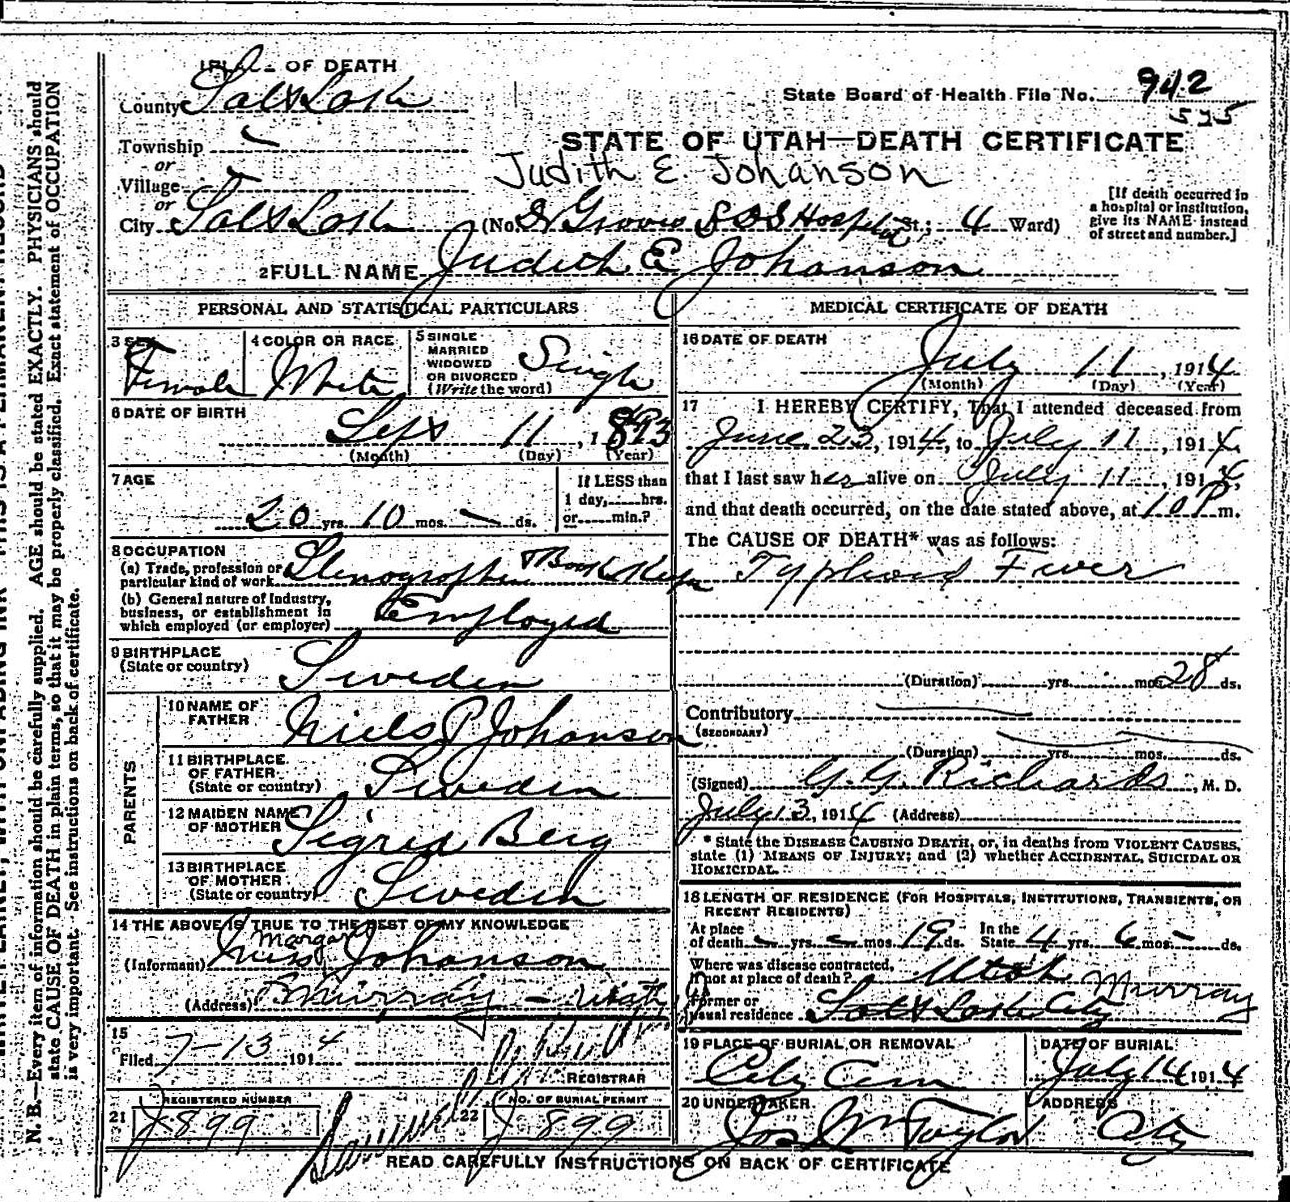 PLACE OF DEATH
County Salt Lake
State Board of Health File No. 942
525
Township
or
STATE OF UTAH—DEATH CERTIFICATE
Village
Judith E Johanson
or
City Salt Lake (No. Dr Groves L D S Hospital St.; 4 Ward)
[If death occurred in
a hospital or institution,
give its NAME instead
of street and number.]
2 FULL NAME Judith E Johanson
PERSONAL AND STATISTICAL PARTICULARS
3 SEX Female
4 COLOR OR RACE White
5 SINGLE
MARRIED
WIDOWED
OR DIVORCED
(Write the word) Single
6 DATE OF BIRTH
Sept 11, 1893
(Month) (Day) (Year)
7 AGE
20 yrs. 10 mos. — ds.
If LESS than
1 day, hrs.
or min.?
8 OCCUPATION
(a) Trade, profession or
particular kind of work Stenographer & Book Keeper
(b) General nature of industry,
business, or establishment in
which employed (or employer) Employed
9 BIRTHPLACE
(State or country) Sweden
PARENTS
10 NAME OF
FATHER Niels P Johanson
11 BIRTHPLACE
OF FATHER
(State or country) Sweden
12 MAIDEN NAME
OF MOTHER Sigrid Berg
13 BIRTHPLACE
OF MOTHER
(State or country) Sweden
14 THE ABOVE IS TRUE TO THE BEST OF MY KNOWLEDGE
(Informant) Miss Margaret Johanson
(Address) Murray - Utah
15
Filed 7-13 1914
REGISTRAR
REGISTERED NUMBER
21 J 899
NO. OF BURIAL PERMIT
22 J 899
MEDICAL CERTIFICATE OF DEATH
16 DATE OF DEATH
July 11, 1914
(Month) (Day) (Year)
17 I HEREBY CERTIFY, That I attended deceased from
June 23, 1914, to July 11, 1914,
that I last saw her alive on July 11, 1914,
and that death occurred, on the date stated above, at 10 P m.
The CAUSE OF DEATH* was as follows:
Typhoid Fever
(Duration) yrs. mos. 28 ds.
Contributory
(SECONDARY)
(Duration) yrs. mos. ds.
(Signed) G. G. Richards, M. D.
July 13, 1914 (Address)
* State the DISEASE CAUSING DEATH, or, in deaths from VIOLENT CAUSES,
state (1) MEANS OF INJURY; and (2) whether ACCIDENTAL, SUICIDAL OR
HOMICIDAL.
18 LENGTH OF RESIDENCE (FOR HOSPITALS, INSTITUTIONS, TRANSIENTS, OR
RECENT RESIDENTS)
At place
of death — yrs. — mos. 19 ds. In the
State 4 yrs. 6 mos. — ds.
Where was disease contracted,
if not at place of death? Utah
Murray
Former or
usual residence Salt Lake City
19 PLACE OF BURIAL OR REMOVAL
City Cem
DATE OF BURIAL
July 14 1914
20 UNDERTAKER
Jos Wm Taylor
ADDRESS
City
READ CAREFULLY INSTRUCTIONS ON BACK OF CERTIFICATE
N. B.—Every item of information should be carefully supplied. AGE should be stated EXACTLY. PHYSICIANS should
state CAUSE OF DEATH in plain terms, so that it may be properly classified. Exact statement of OCCUPATION
is very important. See instructions on back of certificate.